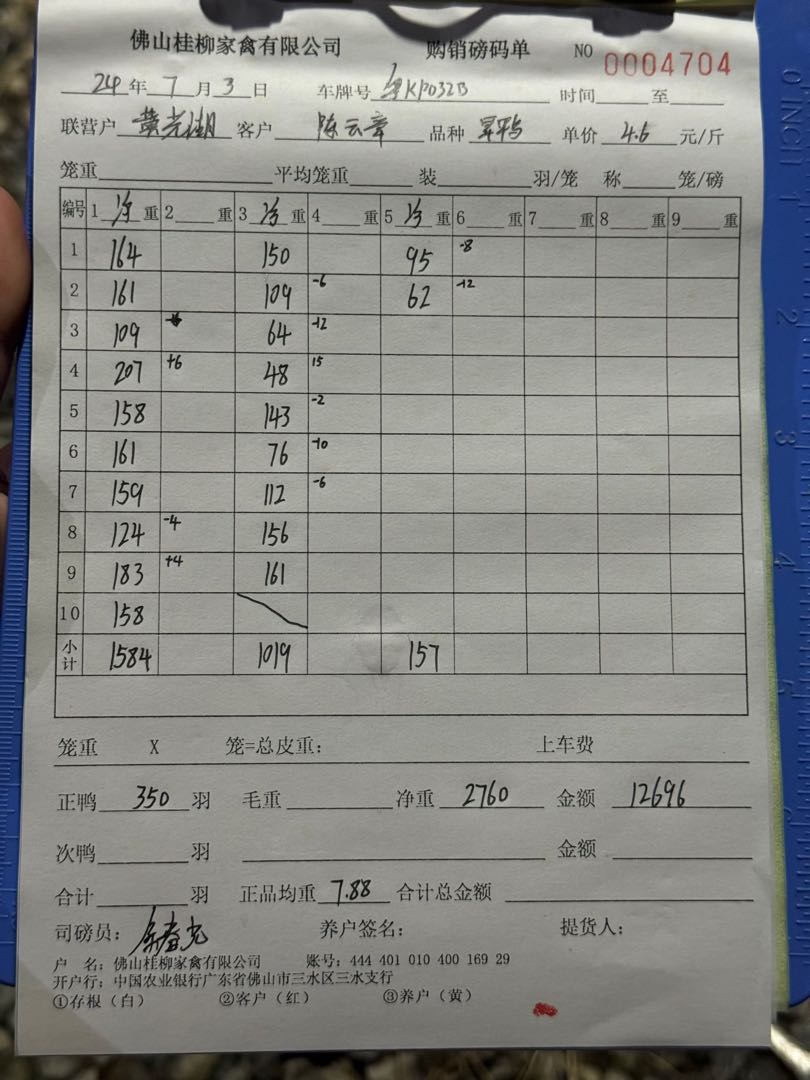 佛山桂柳家禽有限公司 购销磅码单 NO 0004704
24年 7月 3日 车牌号 KP032B 时间 至
联营户 黄光湖 客户 陈云章 品种 单价 4.6 元/斤
笼重 平均笼重 装 羽/笼 称 笼/磅
编号 1 净 重 2 重 3 净 重 4 重 5 净 重 6 重 7 重 8 重 9 重
1 164 150 95 -8
2 161 109 -6 62 -12
3 109 64 -12
4 207 +6 48 15
5 158 143 -2
6 161 76 -10
7 159 112 -6
8 124 -4 156
9 183 +4 161
10 158
小计 1584 1019 157
笼重 X 笼=总皮重: 上车费
正鸭 350 羽 毛重 净重 2760 金额 12696
次鸭 羽 金额
合计 羽 正品均重 7.88 合计总金额
司磅员: 养户签名: 提货人:
户 名: 佛山桂柳家禽有限公司 账号: 444 401 010 400 169 29
开户行: 中国农业银行广东省佛山市三水区三水支行
①存根（白） ②客户（红） ③养户（黄）
0 INCH 1 2 3 4 5